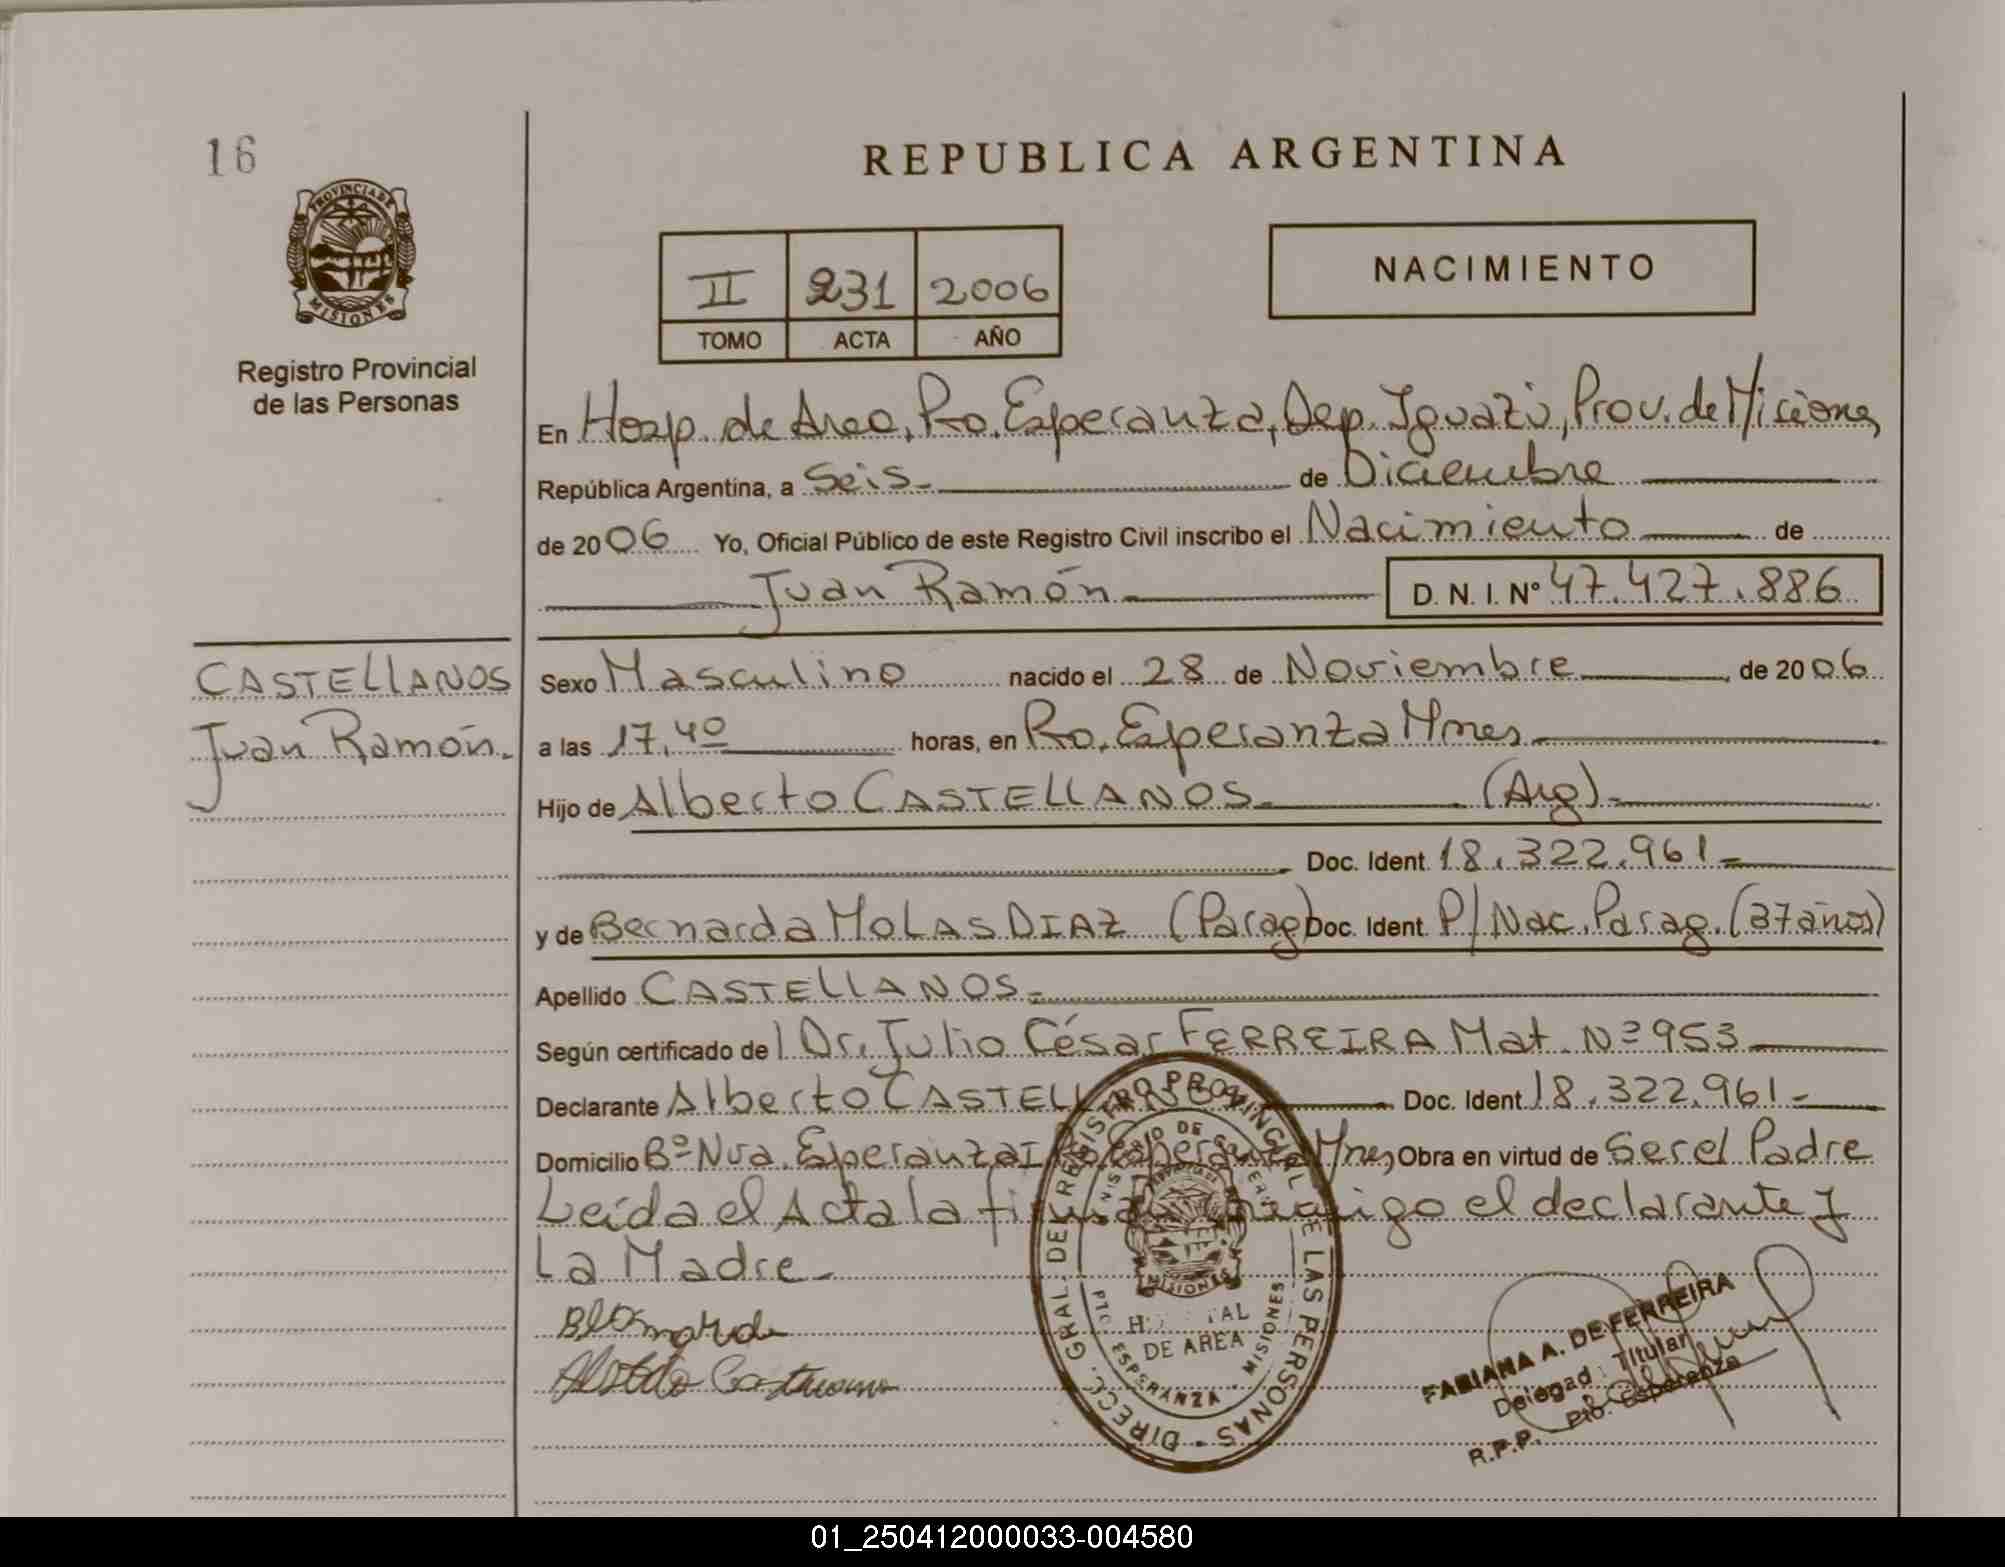 16
REPUBLICA ARGENTINA
PROVINCIA DE
MISIONES
Registro Provincial
de las Personas
II 231 2006
TOMO ACTA AÑO
NACIMIENTO
En Hosp. de Area, Pto. Esperanza, Dep. Iguazú, Prov. de Misiones
República Argentina, a Seis de Diciembre
de 2006 Yo, Oficial Público de este Registro Civil inscribo el Nacimiento de
Juan Ramón D. N. I. Nº 47.427.886
CASTELLANOS
Juan Ramón.
Sexo Masculino nacido el 28 de Noviembre de 2006
a las 17,40 horas, en Pto. Esperanza Mnes
Hijo de Alberto CASTELLANOS (Arg)
Doc. Ident. 18.322.961
y de Bernarda MOLAS DIAZ (Parag) Doc. Ident. P/ Nac. Parag. (37 años)
Apellido CASTELLANOS
Según certificado del Dr. Julio César FERREIRA Mat. Nº 953
Declarante Alberto CASTELLANOS Doc. Ident. 18.322.961
Domicilio Bº Nva. Esperanza I Pto. Esperanza Mnes, Obra en virtud de Ser el Padre
Leída el Acta la firman conmigo el declarante y
La Madre
DIRECC. GRAL. DEL REGISTRO PROVINCIAL DE LAS PERSONAS
MINISTERIO DE GOBIERNO
MISIONES
HOSPITAL
DE AREA
PTO. ESPERANZA - MISIONES
FABIANA A. DE FERREIRA
Delegada Titular
R.P.P. Pto. Esperanza
01_250412000033-004580